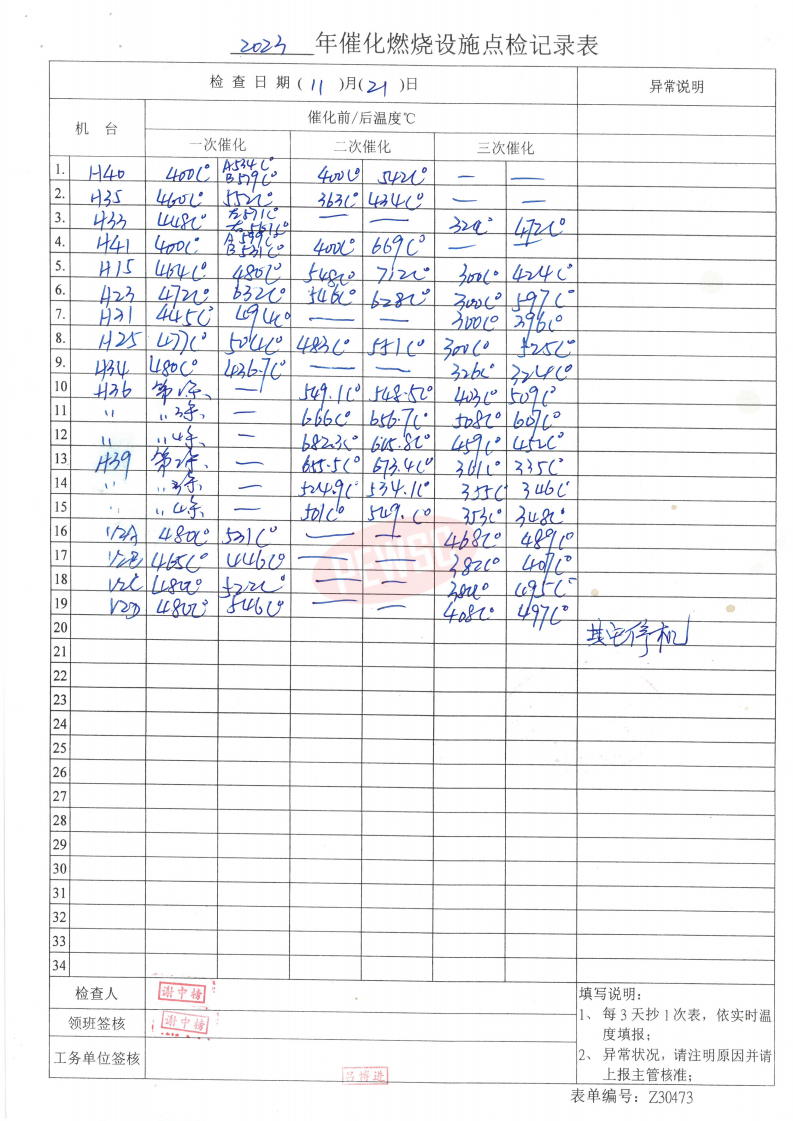 2023 年催化燃烧设施点检记录表
检 查 日 期 ( 11 )月( 21 )日 异常说明
机 台 催化前/后温度℃
一次催化 二次催化 三次催化
1. H40 400C° A534C° B579C° 400C° 542C° — —
2. H35 460C° 552C° 363C° 434C° — —
3. H33 448C° 左571C° 右561C° — — 320C° 472C°
4. H41 400C° A599C° B531C° 400C° 669C° — —
5. H15 464C° 480C° 548C° 712C° 300C° 424C°
6. H23 472C° 632C° 546C° 628C° 300C° 597C°
7. H31 445C° 494C° — — 300C° 396C°
8. H25 477C° 504C° 483C° 551C° 300C° 525C°
9. H34 480C° 436.7C° — — 326C° 324C°
10 H36 第2条、 — 549.1C° 548.5C° 403C° 509C°
11 〃 〃3条、 — 666C° 656.7C° 508C° 607C°
12 〃 〃4条、 — 682.3C° 665.8C° 459C° 452C°
13 H39 第2条、 — 655.5C° 673.4C° 361C° 335C°
14 〃 〃3条、 — 524.9C° 534.1C° 355C° 346C°
15 〃 〃4条、 — 501C° 549.C° 353C° 348C°
16 V2A 480C° 531C° — — 468C° 489C°
17 V2B 465C° 446C° — — 382C° 407C°
18 V2C 480C° 522C° — — 380C° 495C°
19 V2D 480C° 546C° — — 408C° 497C°
20 其它停机
21
22
23
24
25
26
27
28
29
30
31
32
33
34
检查人 谢中榜
领班签核 谢中榜
工务单位签核 吕博进
填写说明:
1、 每 3 天抄 1 次表，依实时温
度填报；
2、 异常状况，请注明原因并请
上报主管核准；
表单编号：Z30473